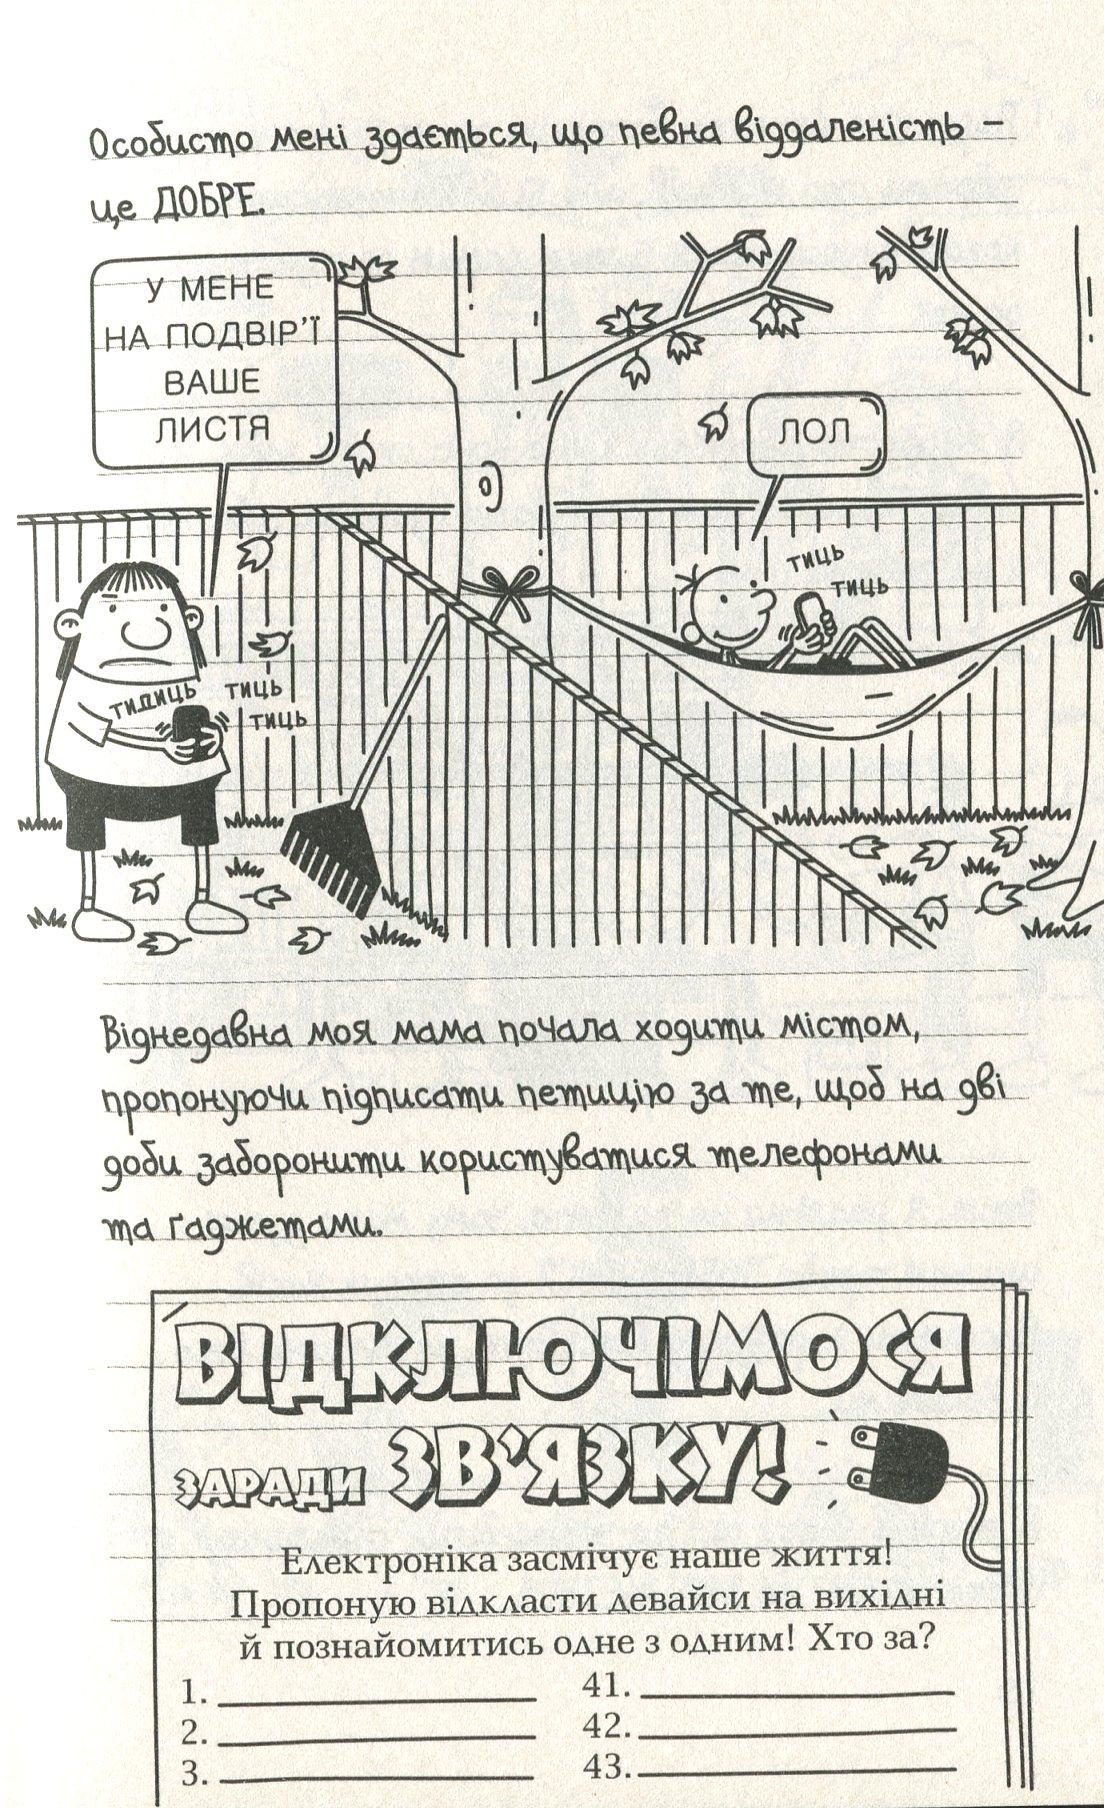 Особисто мені здається, що певна віддаленість –
це ДОБРЕ.
У МЕНЕ
НА ПОДВІР'Ї
ВАШЕ
ЛИСТЯ
ЛОЛ
ТИЦЬ
ТИЦЬ
ТИДИЦЬ
ТИЦЬ
ТИЦЬ
Віднедавна моя мама почала ходити містом,
пропонуючи підписати петицію за те, щоб на дві
доби заборонити користуватися телефонами
та ґаджетами.
ВІДКЛЮЧІМОСЯ
ЗАРАДИ ЗВ'ЯЗКУ!
Електроніка засмічує наше життя!
Пропоную відкласти девайси на вихідні
й познайомитись одне з одним! Хто за?
1. 41.
2. 42.
3. 43.